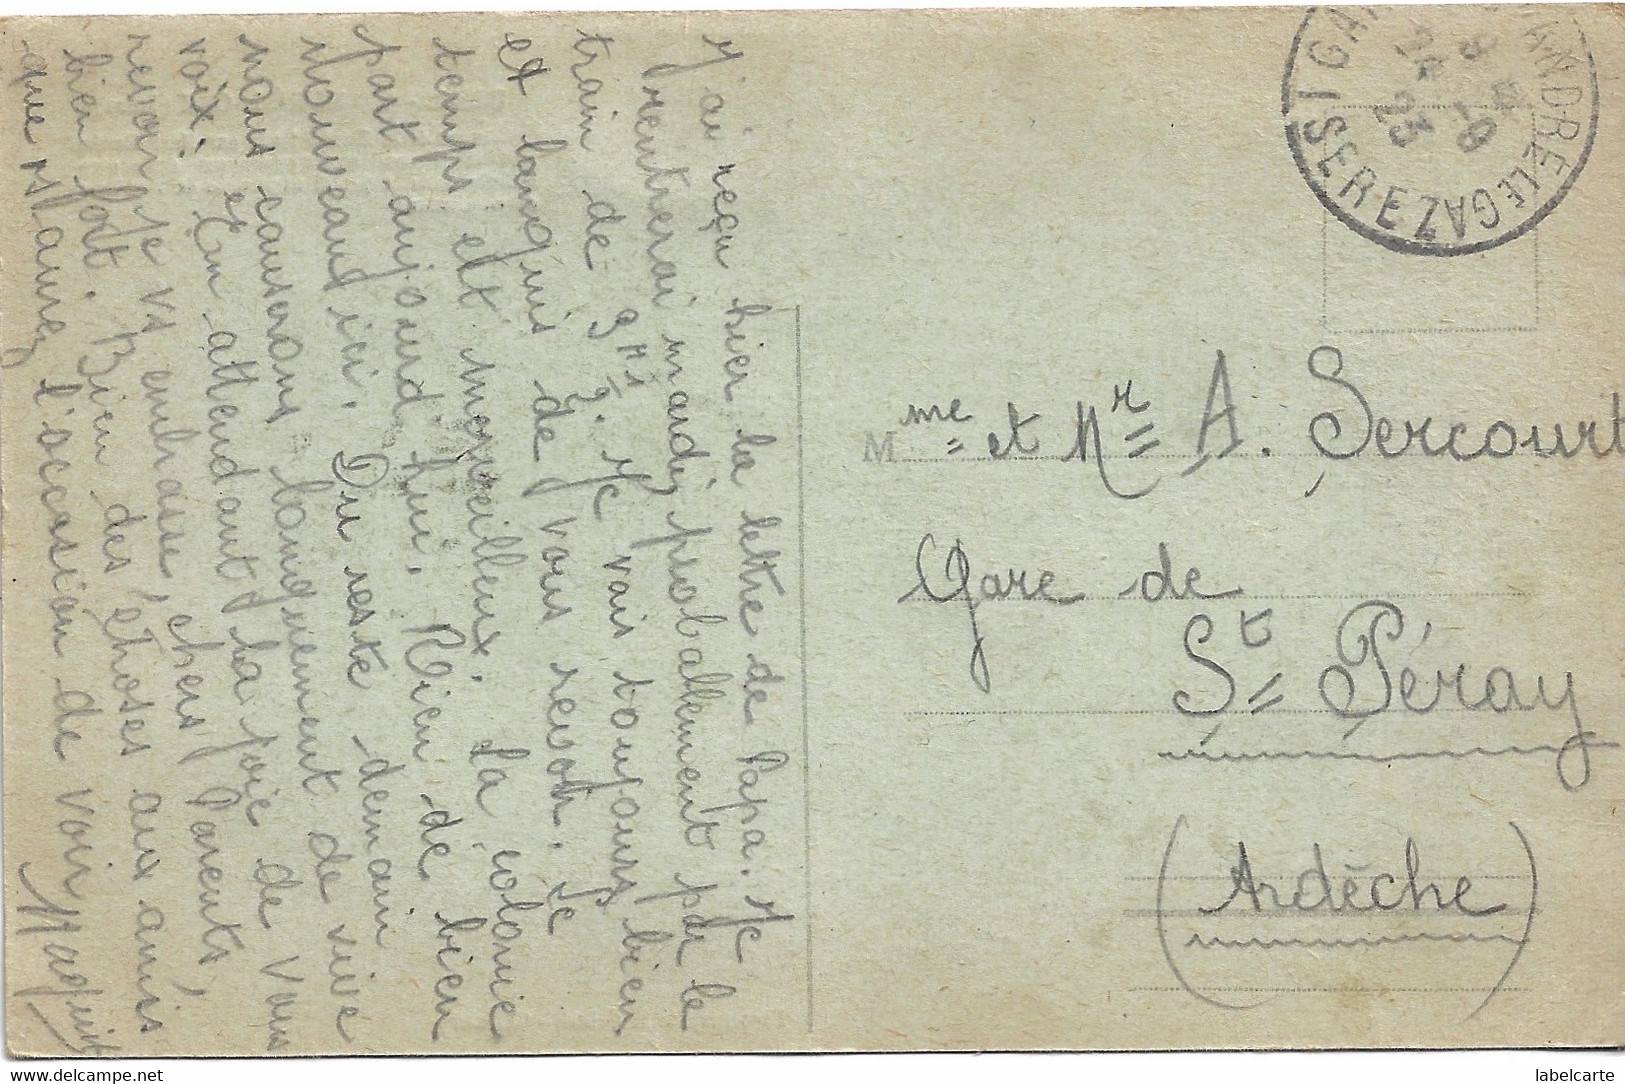 J'ai reçu hier la lettre de Papa. Je
rentrerai mardi probablement par le
train de 9h ½. Je vais toujours bien
et languis de vous revoir. Le
temps est merveilleux. La colonie
part aujourd'hui. Rien de bien
nouveau ici. Du reste demain
nous causerons longuement de vive
voix. En attendant la joie de vous
revoir je vs embrasse, chers Parents,
bien fort. Bien des choses aux amis
que vs aurez l'occasion de voir
Mme et Mr A. Sercourt
Gare de
St Péray
(Ardèche)
GARE
ANDRE-LE-GAZ
ISERE
24
23
-9
www.delcampe.net
labelcarte